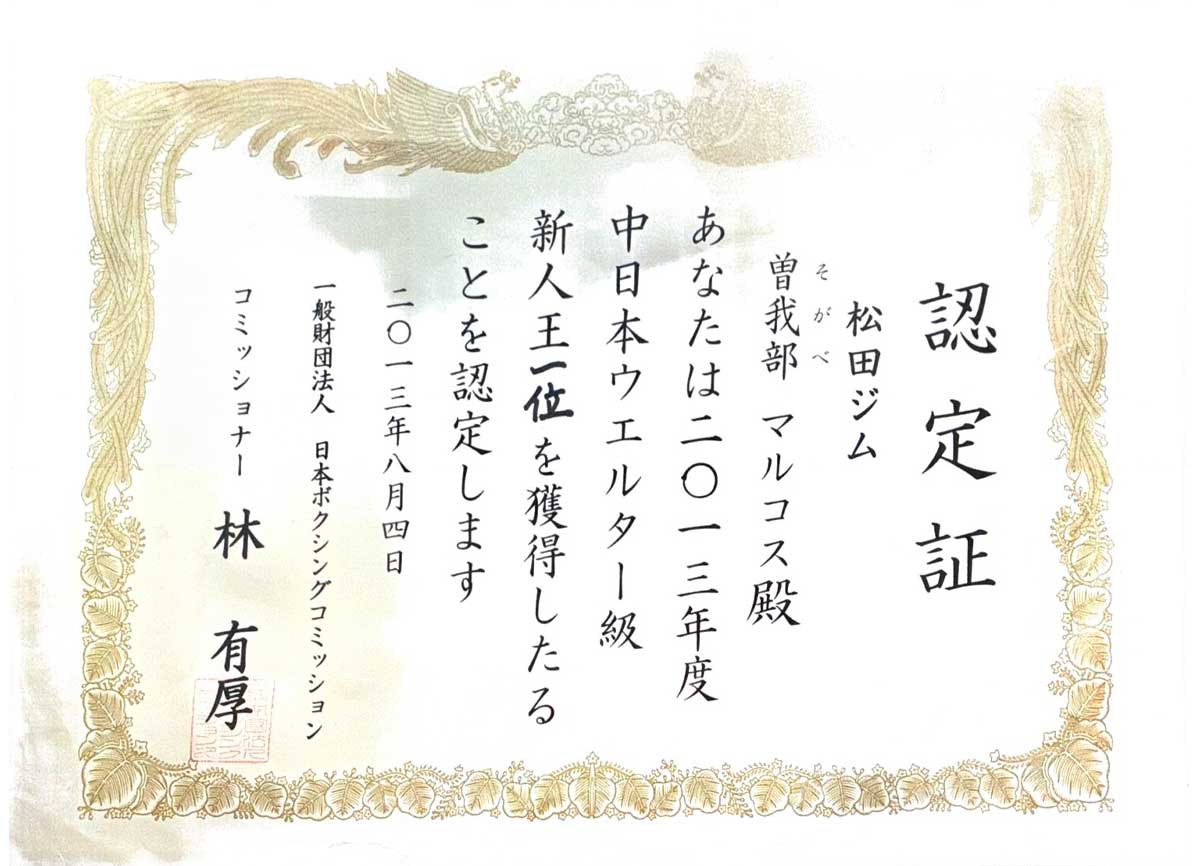 認定証
松田ジム
そがべ
曽我部 マルコス殿
あなたは二〇一三年度
中日本ウエルター級
新人王一位を獲得したる
ことを認定します
二〇一三年八月四日
一般財団法人 日本ボクシングコミッション
コミッショナー 林 有厚